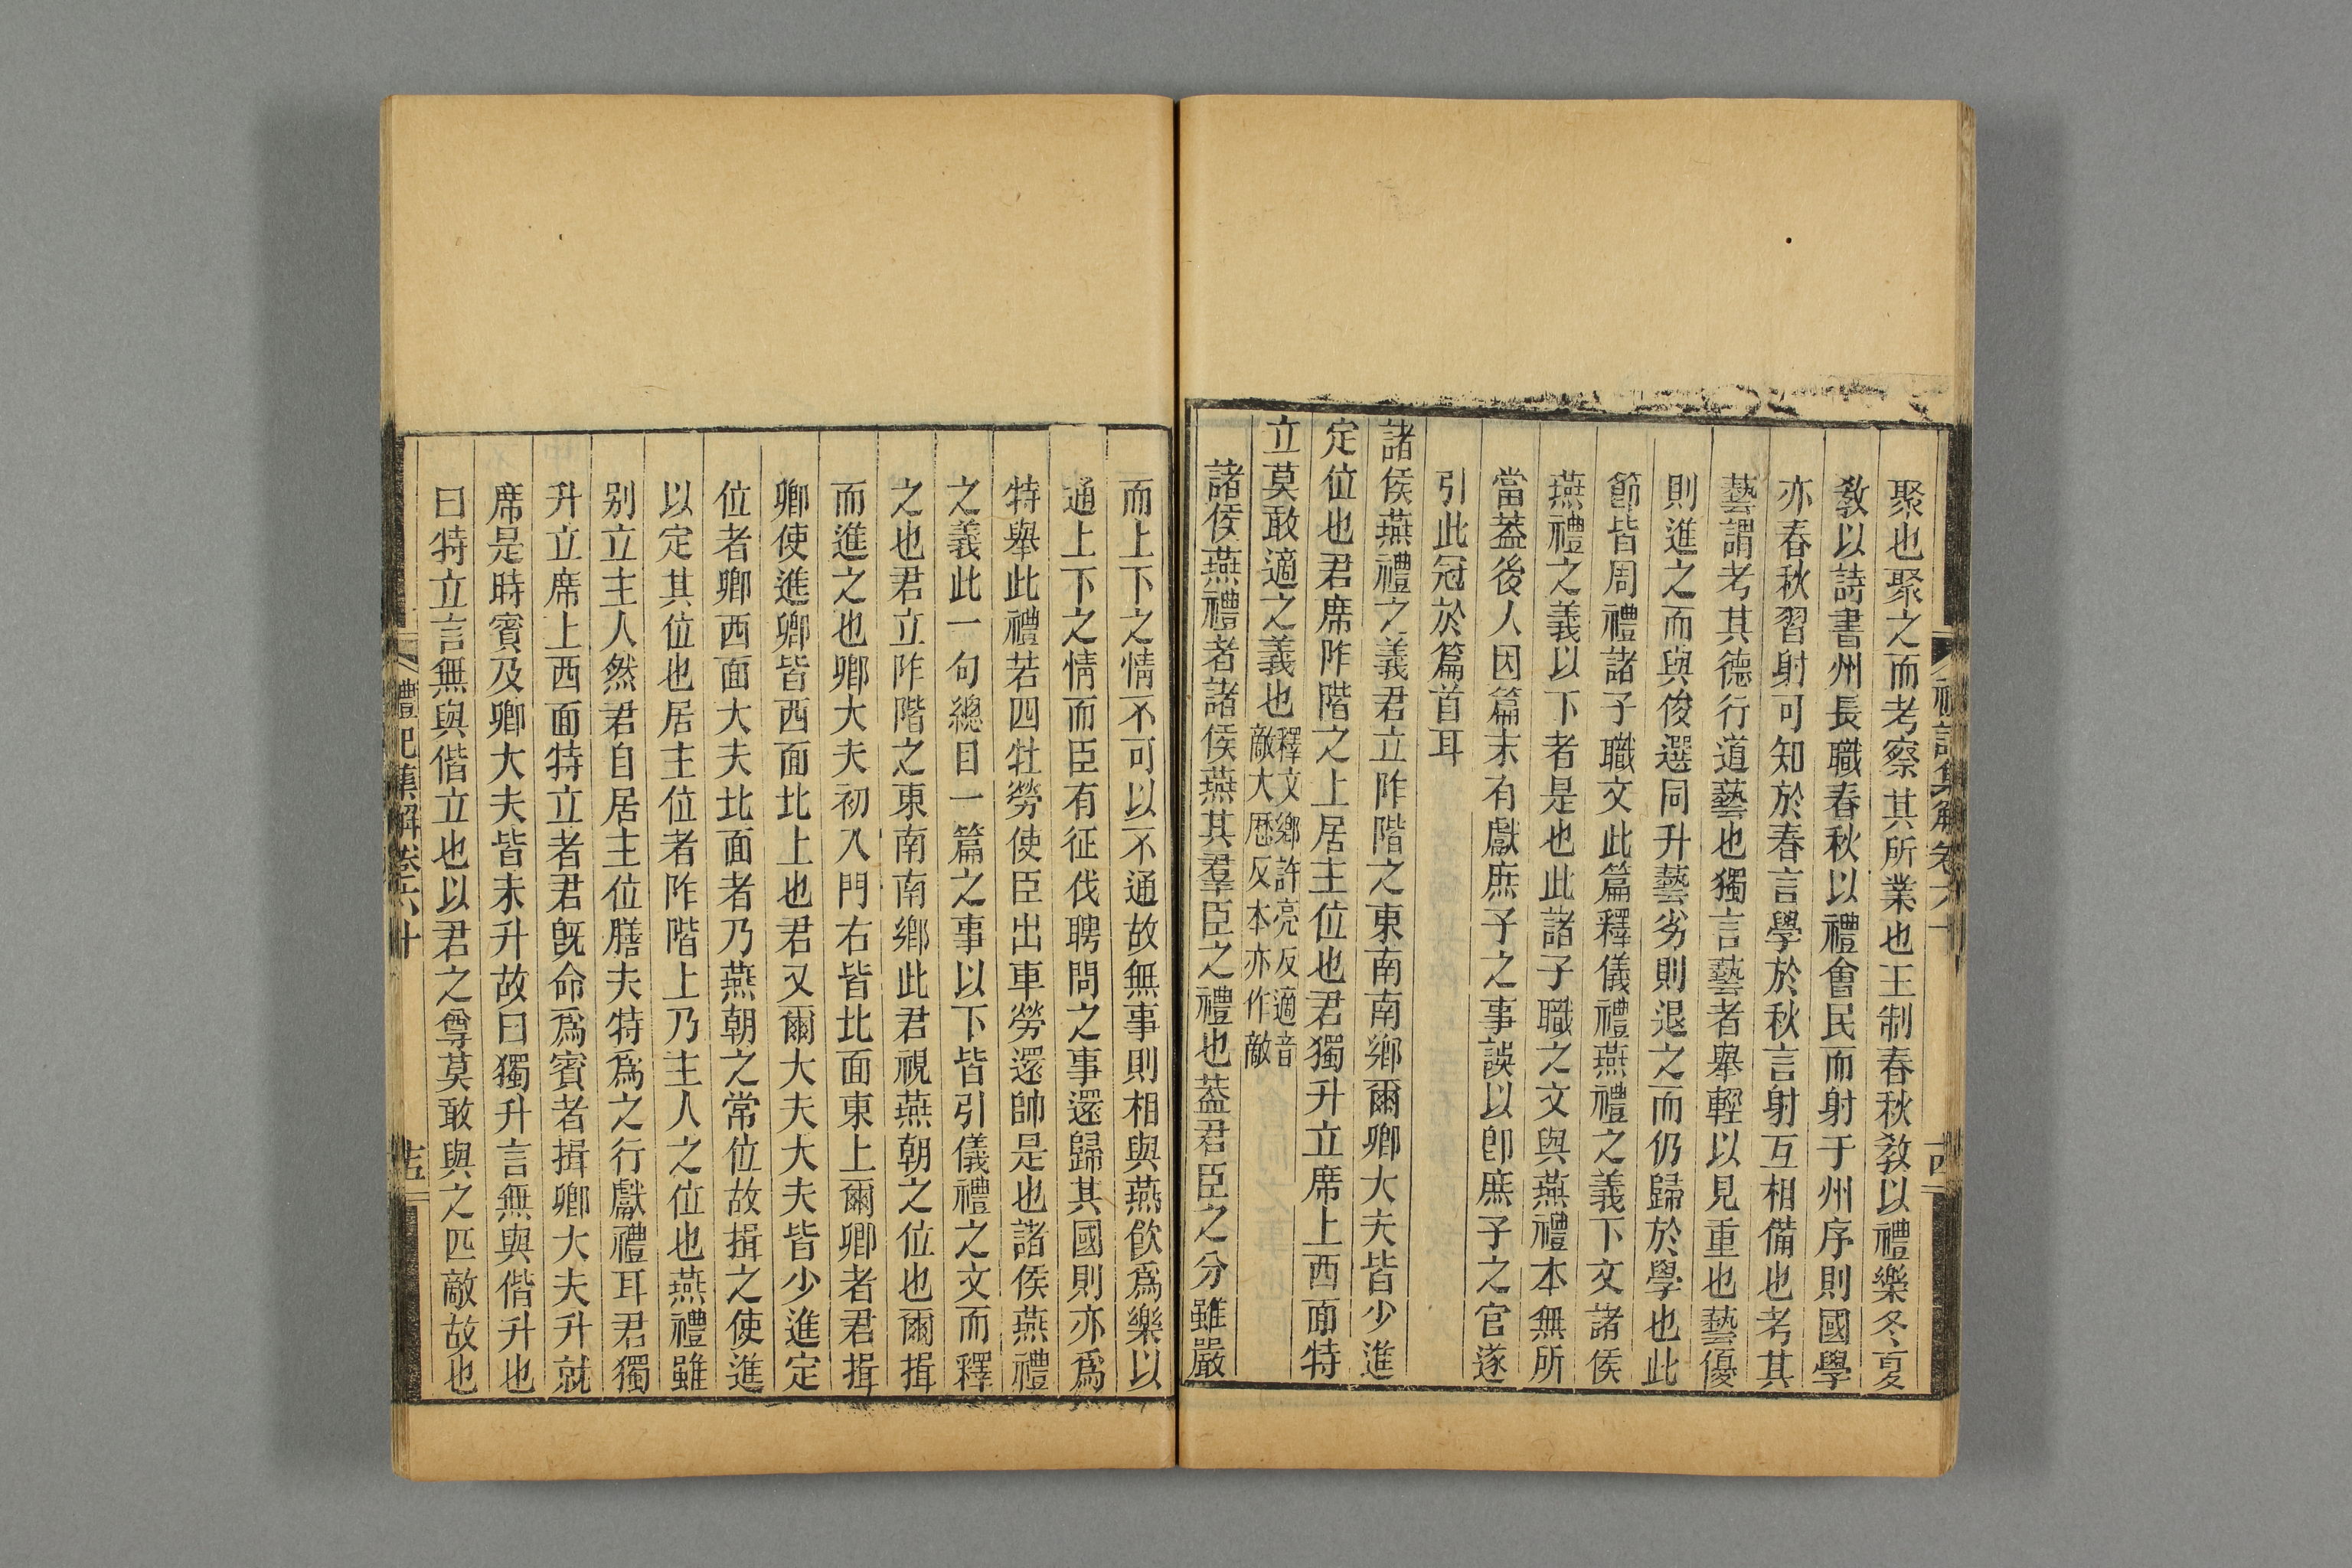 聚也聚之而考察其所業也王制春秋敎以禮樂冬夏
敎以詩書州長職春秋以禮會民而射于州序則國學
亦春秋習射可知於春言學於秋言射互相備也考其
藝謂考其德行道藝也獨言藝者舉輕以見重也藝優
則進之而與俊選同升藝劣則退之而仍歸於學也此
節皆周禮諸子職文此篇釋儀禮燕禮之義下文諸侯
燕禮之義以下者是也此諸子職之文與燕禮本無所
當蓋後人因篇末有獻庶子之事誤以卽庶子之官遂
引此冠於篇首耳
諸侯燕禮之義君立阼階之東南南鄉爾卿大夫皆少進
定位也君席阼階之上居主位也君獨升立席上西面特
立莫敢適之義也
釋文鄉許亮反適音
敵大歷反本亦作敵
諸侯燕禮者諸侯燕其羣臣之禮也蓋君臣之分雖嚴
禮記集解卷六十
十四
而上下之情不可以不通故無事則相與燕飲爲樂以
通上下之情而臣有征伐聘問之事還歸其國則亦爲
特舉此禮若四牡勞使臣出車勞還帥是也諸侯燕禮
之義此一句總目一篇之事以下皆引儀禮之文而釋
之也君立阼階之東南南鄉此君視燕朝之位也爾揖
而進之也卿大夫初入門右皆北面東上爾卿者君揖
卿使進卿皆西面北上也君又爾大夫大夫皆少進定
位者卿西面大夫北面者乃燕朝之常位故揖之使進
以定其位也居主位者阼階上乃主人之位也燕禮雖
别立主人然君自居主位膳夫特爲之行獻禮耳君獨
升立席上西面特立者君旣命爲賓者揖卿大夫升就
席是時賓及卿大夫皆未升故曰獨升言無與偕升也
曰特立言無與偕立也以君之尊莫敢與之匹敵故也
禮記集解卷六十
十五